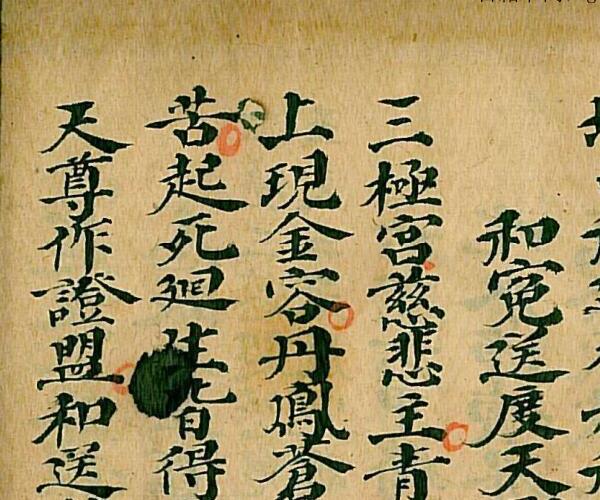 和寃送度天
三極宮慈悲主青
上現金容丹鳳蒼
苦起死廻生兀自得
天尊作證盟和送